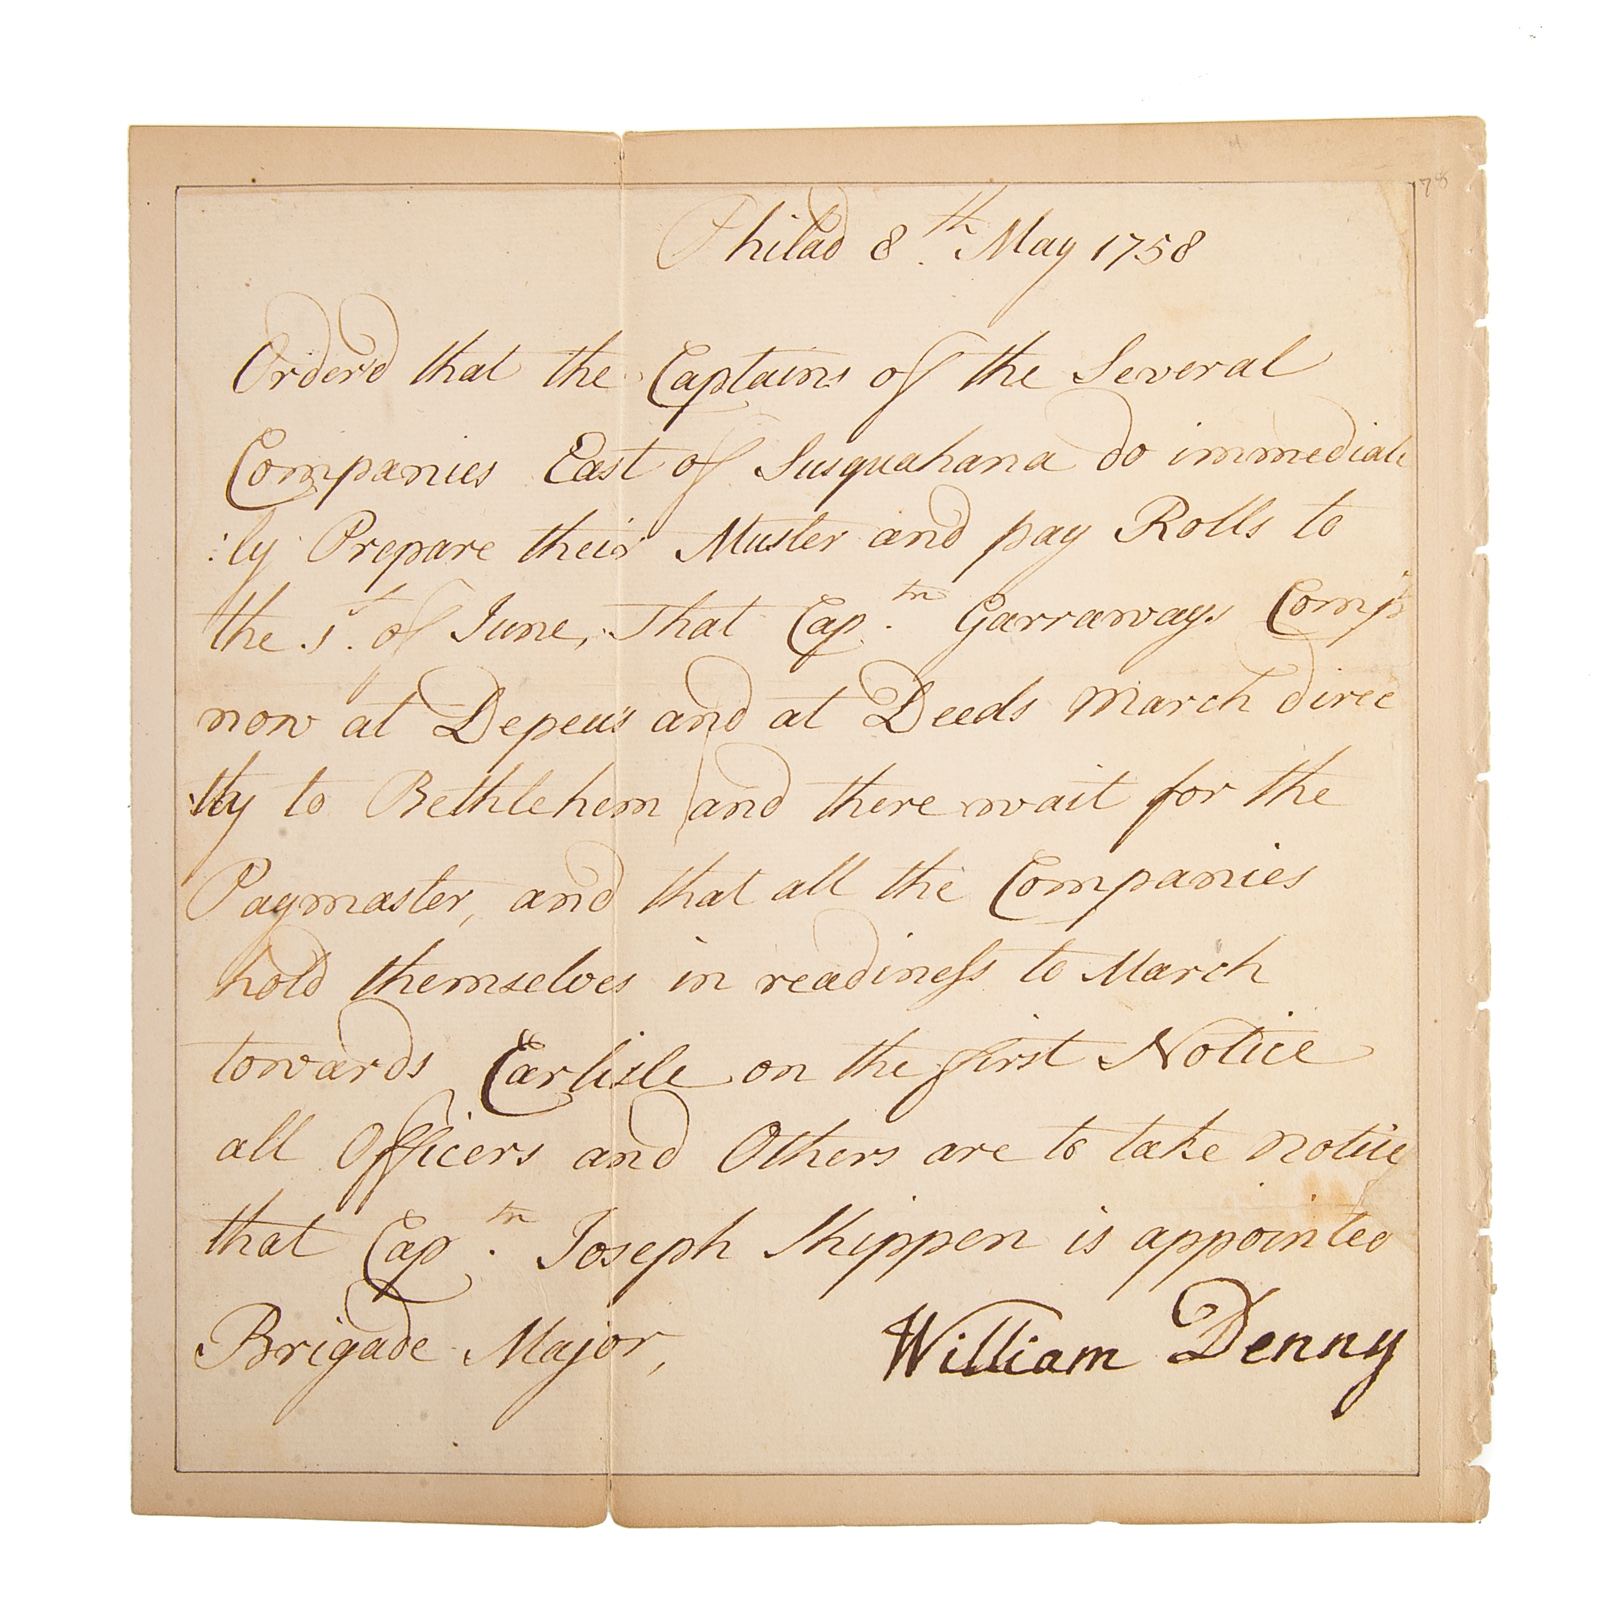 Philad 8th. May 1758
Order'd that the Captains of the Several
Companies East of Susquahana do immediate
:ly Prepare their Muster and pay Rolls to
the 1st. of June, That Captn. Garraways Comp
now at Depeu's and at Deeds March direc
tly to Bethlehem and there wait for the
Paymaster, and that all the Companies
hold themselves in readiness to March
towards Carlisle on the first Notice
all Officers and Others are to take notice
that Captn. Joseph Shippen is appointed
Brigade Major,
William Denny
78